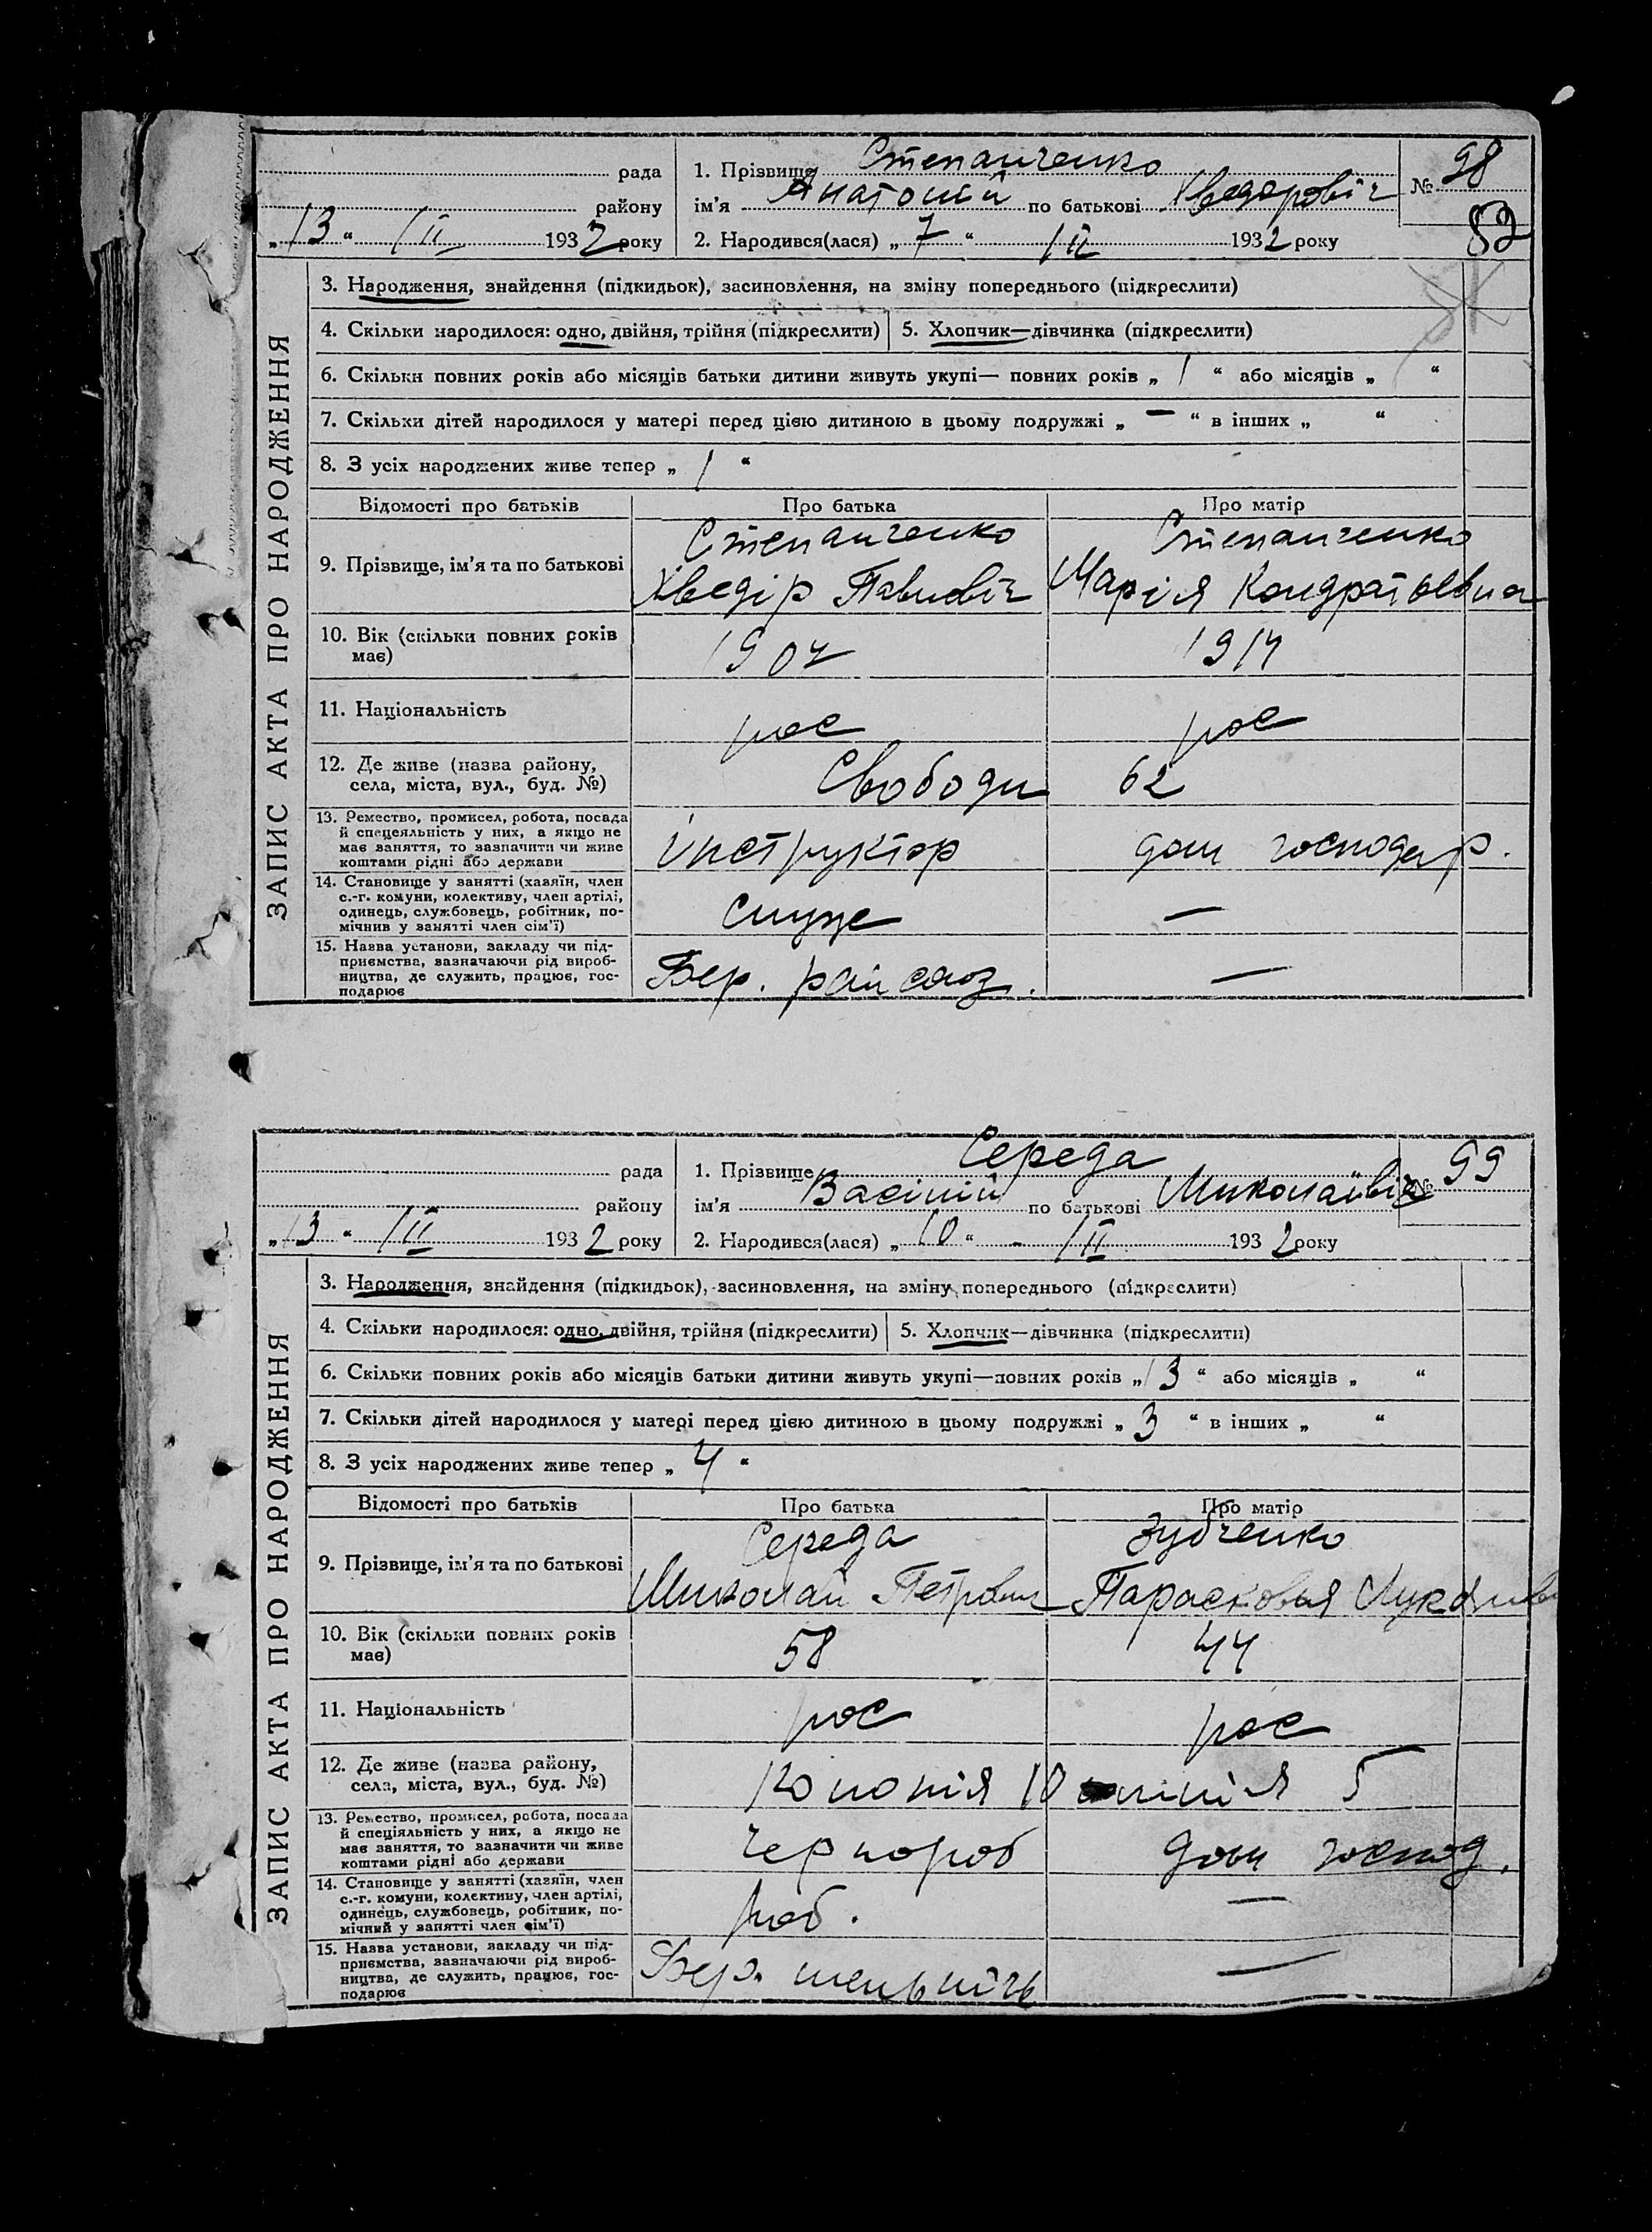 Степанченко
рада 1. Прізвище № 98
Анатолій Хведоровіч
району ім'я по батькові
52
„13“ III 1932 року 2. Народився(лася) „7“ III 1932 року
ЗАПИС АКТА ПРО НАРОДЖЕННЯ
3. Народження, знайдення (підкидьок), засиновлення, на зміну попереднього (підкреслити)
4. Скільки народилося: одно, двійня, трійня (підкреслити) 5. Хлопчик—дівчинка (підкреслити)
6. Скільки повних років або місяців батьки дитини живуть укупі— повних років „ 1 “ або місяців „ “
7. Скільки дітей народилося у матері перед цією дитиною в цьому подружжі „ — “ в інших „ “
8. З усіх народжених живе тепер „ 1 “
Відомості про батьків Про батька Про матір
Степанченко Степанченко
9. Прізвище, ім'я та по батькові Хведір Павловіч Марія Кондратьевна
10. Вік (скільки повних років
має) 1907 1914
11. Національність рос рос
12. Де живе (назва району,
села, міста, вул., буд. №) Свободи 62
13. Ремество, промисел, робота, посада
й спецеяльність у них, а якщо не
має заняття, то зазначити чи живе
коштами рідні або держави інструктор дом господар.
14. Становище у занятті (хазяїн, член
с.-г. комуни, колективу, член артілі,
одинець, службовець, робітник, по-
мічнив у занятті член сім'ї) служе —
15. Назва установи, закладу чи під-
приємства, зазначаючи рід вироб-
ництва, де служить, працює, гос-
подарює Бер. райсоюз. —
Середа
рада 1. Прізвище № 99
Васілій Миколаївіч
району ім'я по батькові
„13“ III 1932 року 2. Народився(лася) „10“ III 1932 року
ЗАПИС АКТА ПРО НАРОДЖЕННЯ
3. Народження, знайдення (підкидьок), засиновлення, на зміну попереднього (підкреслити)
4. Скільки народилося: одно, двійня, трійня (підкреслити) 5. Хлопчик—дівчинка (підкреслити)
6. Скільки повних років або місяців батьки дитини живуть укупі—повних років „13“ або місяців „ “
7. Скільки дітей народилося у матері перед цією дитиною в цьому подружжі „ 3 “ в інших „ “
8. З усіх народжених живе тепер „ 4 “
Відомості про батьків Про батька Про матір
Середа Зубченко
9. Прізвище, ім'я та по батькові Миколай Петрович Парасковья
10. Вік (скільки повних років
має) 58 44
11. Національність рос рос
12. Де живе (назва району,
села, міста, вул., буд. №) Колонія 10 лінія 5
13. Ремество, промисел, робота, посада
й спеціяльність у них, а якщо не
має заняття, то зазначити чи живе
коштами рідні або держави чернороб дом господ.
14. Становище у занятті (хазяїн, член
с.-г. комуни, колективу, член артілі,
одинець, службовець, робітник, по-
мічний у занятті член сім'ї) роб. —
15. Назва установи, закладу чи під-
приємства, зазначаючи рід вироб-
ництва, де служить, працює, гос-
подарює Бер. —